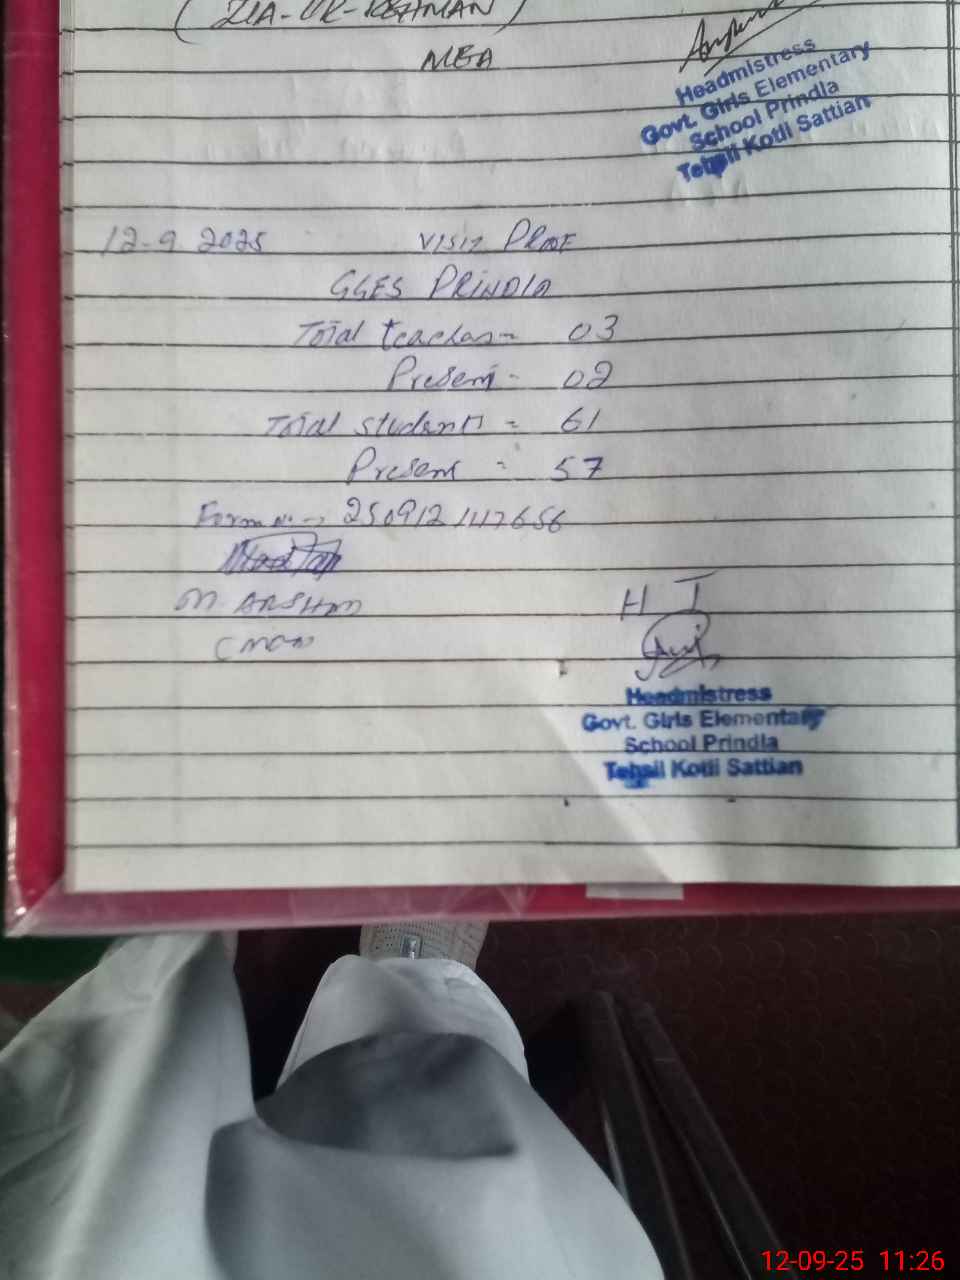 (ZIA-UR-REHMAN)
MEA
Headmistress
Govt. Girls Elementary
School Prindla
Tehsil Kotli Sattian
12-9 2025 VISIT PROF
GGES PRINDLA
Total teachers = 03
Present - 02
Total students = 61
Present = 57
Form No. → 250912147656
M. ARSHAD
H T
Headmistress
Govt. Girls Elementary
School Prindla
Tehsil Kotli Sattian
12-09-25 11:26